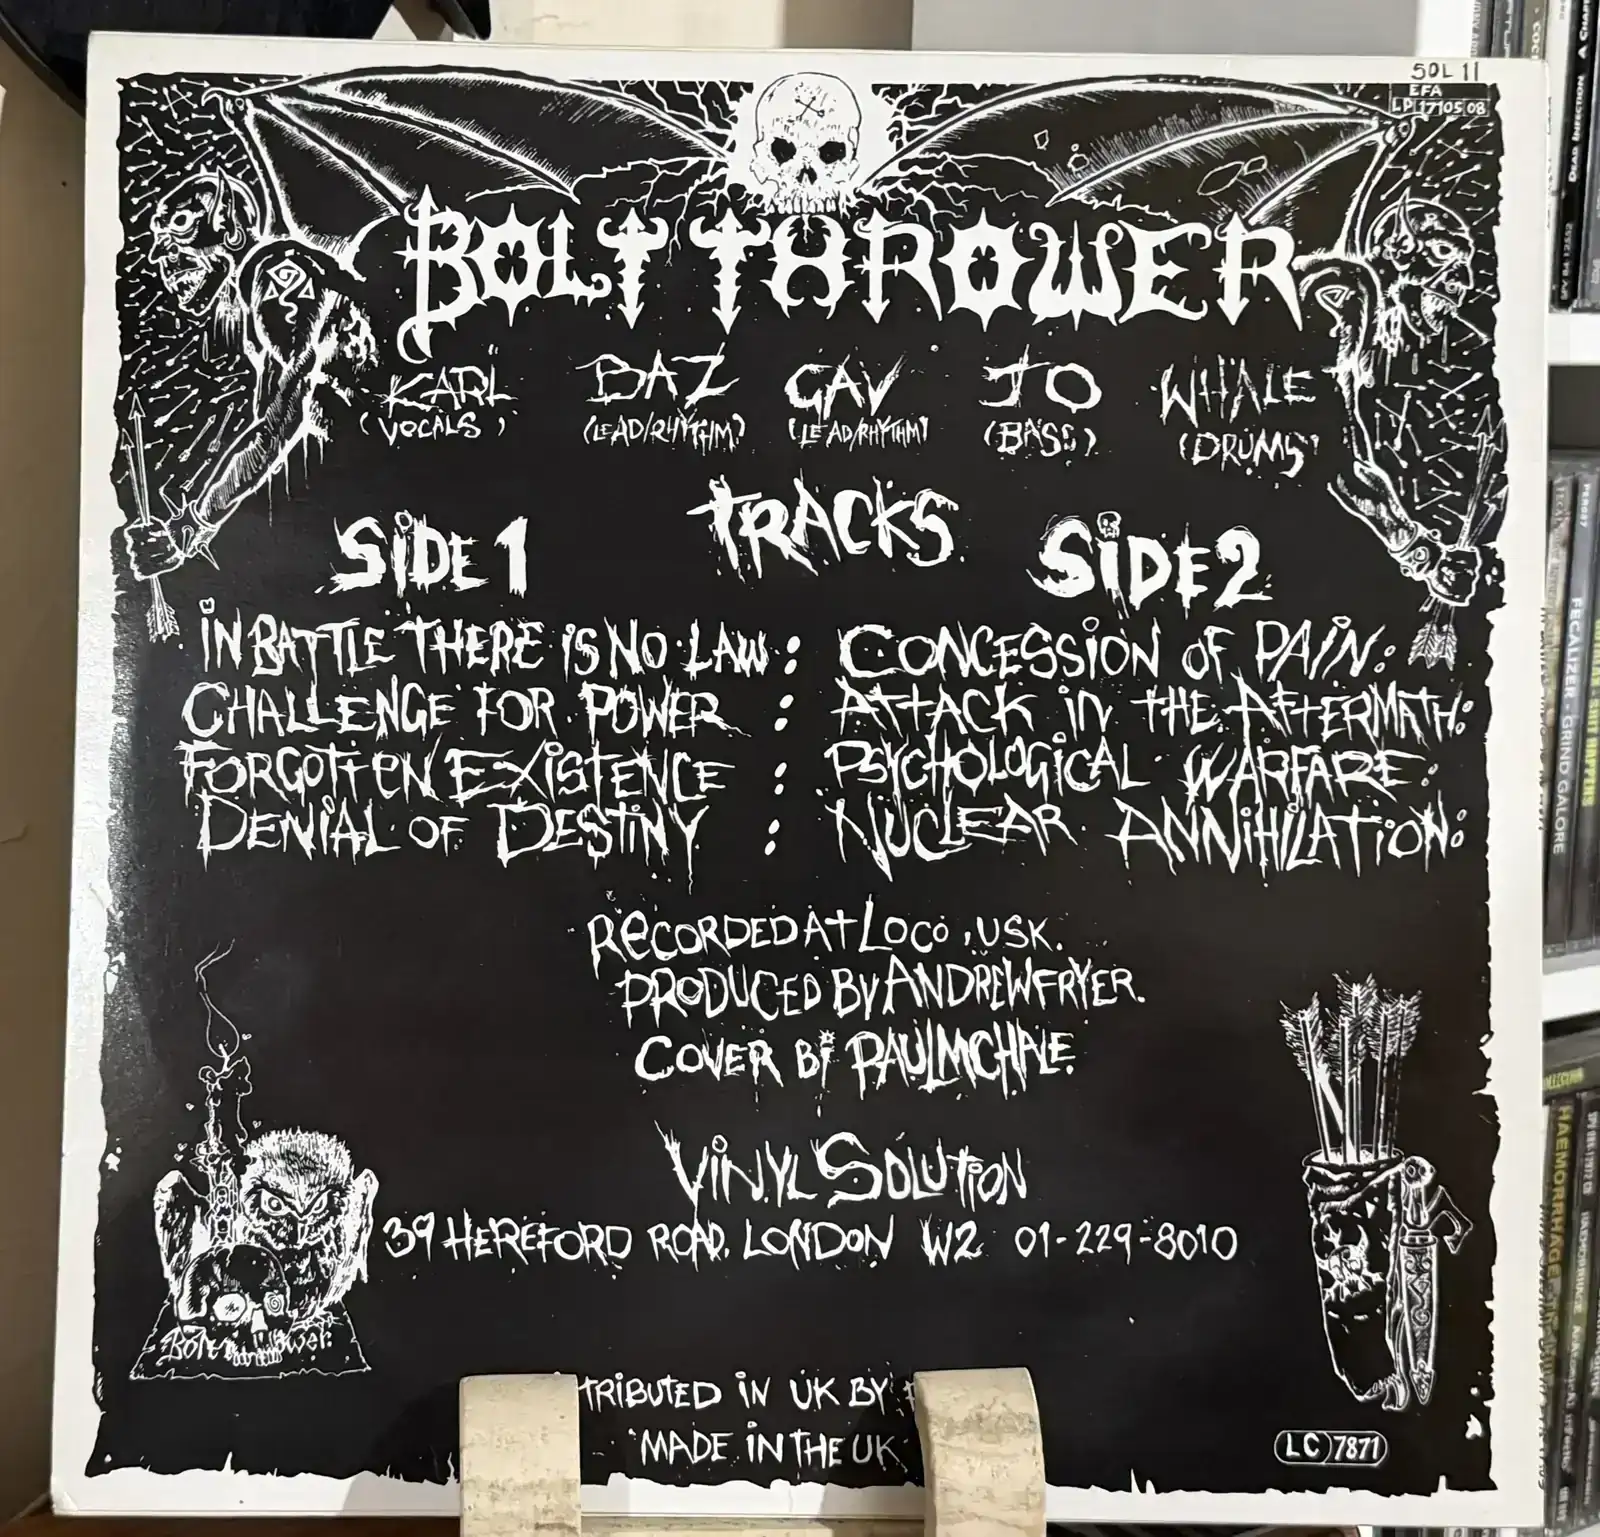 SOL 11
EFA
LP 17105 08
BOLT THROWER
KARL BAZ GAV JO WHALE
(VOCALS) (LEAD/RHYTHM) (LEAD/RHYTHM) (BASS) (DRUMS)
TRACKS
SIDE 1 SIDE 2
IN BATTLE THERE IS NO LAW : CONCESSION OF PAIN:
CHALLENGE FOR POWER : ATTACK IN THE AFTERMATH:
FORGOTTEN EXISTENCE : PSYCHOLOGICAL WARFARE:
DENIAL OF DESTINY : NUCLEAR ANNIHILATION:
RECORDED AT LOCO, USK.
PRODUCED BY ANDREW FRYER.
COVER BI PAUL MCHALE.
VINYL SOLUTION
39 HEREFORD ROAD, LONDON W2 01-229-8010
TRIBUTED IN UK BY
MADE IN THE UK
LC 7871
FECALIZER - GRIND GALORE
HAEMORRHAGE